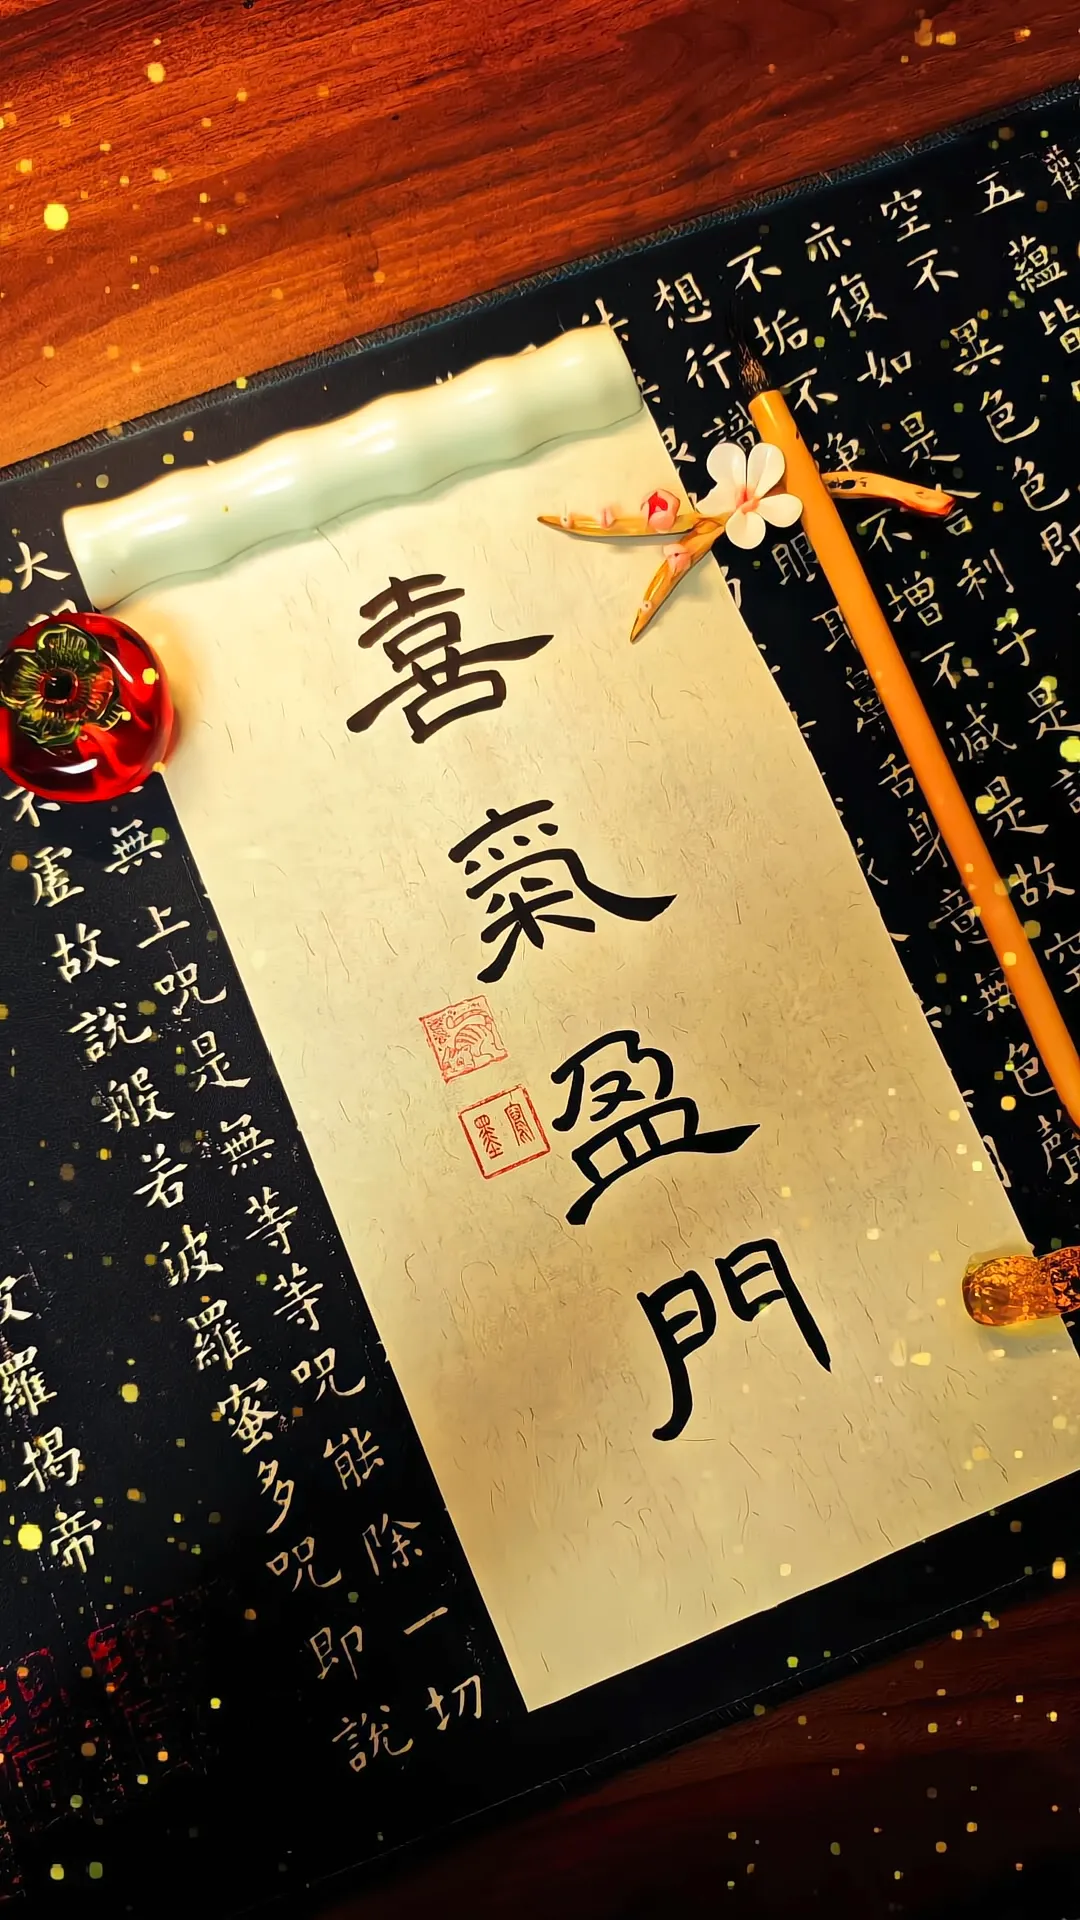 喜氣盈門
觀
五蘊皆
空不異色色即
亦復如是舍利子是諸
不垢不淨不增不減是故空
想行識
眼耳鼻舌身意無色聲
大
無上咒是無等等咒能除一切
不虛故說般若波羅蜜多咒即說
波羅揭帝